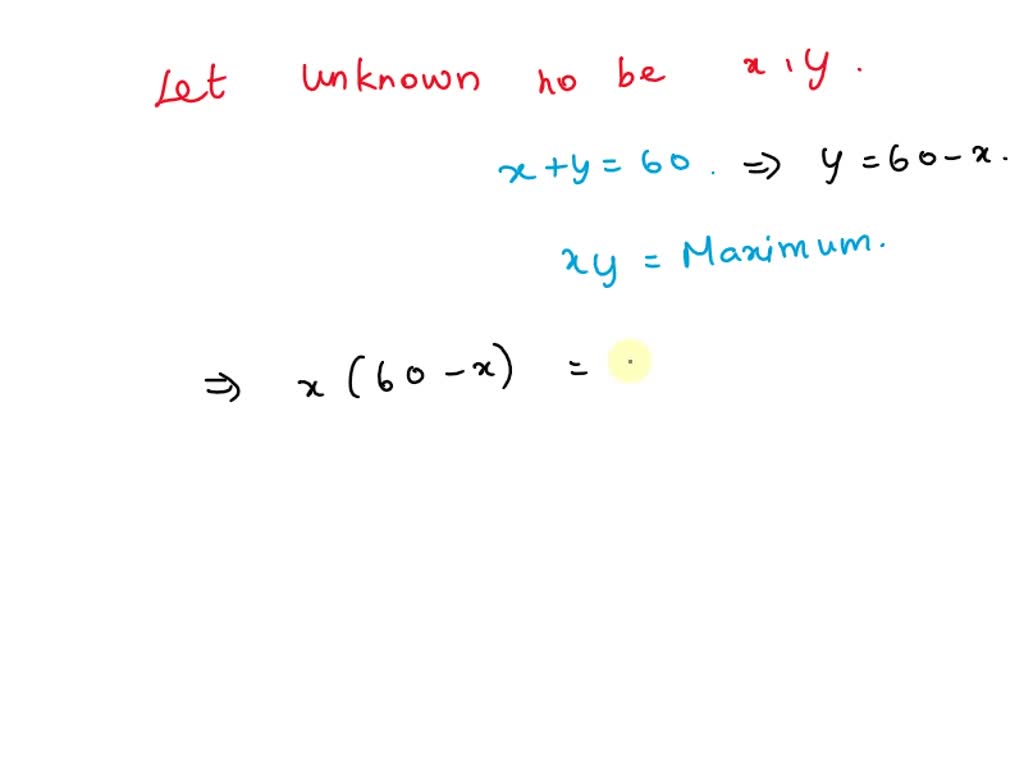 Let unknown no be x, y.
x+y = 60. ⇒ y = 60-x.
xy = Maximum.
⇒ x(60-x) =